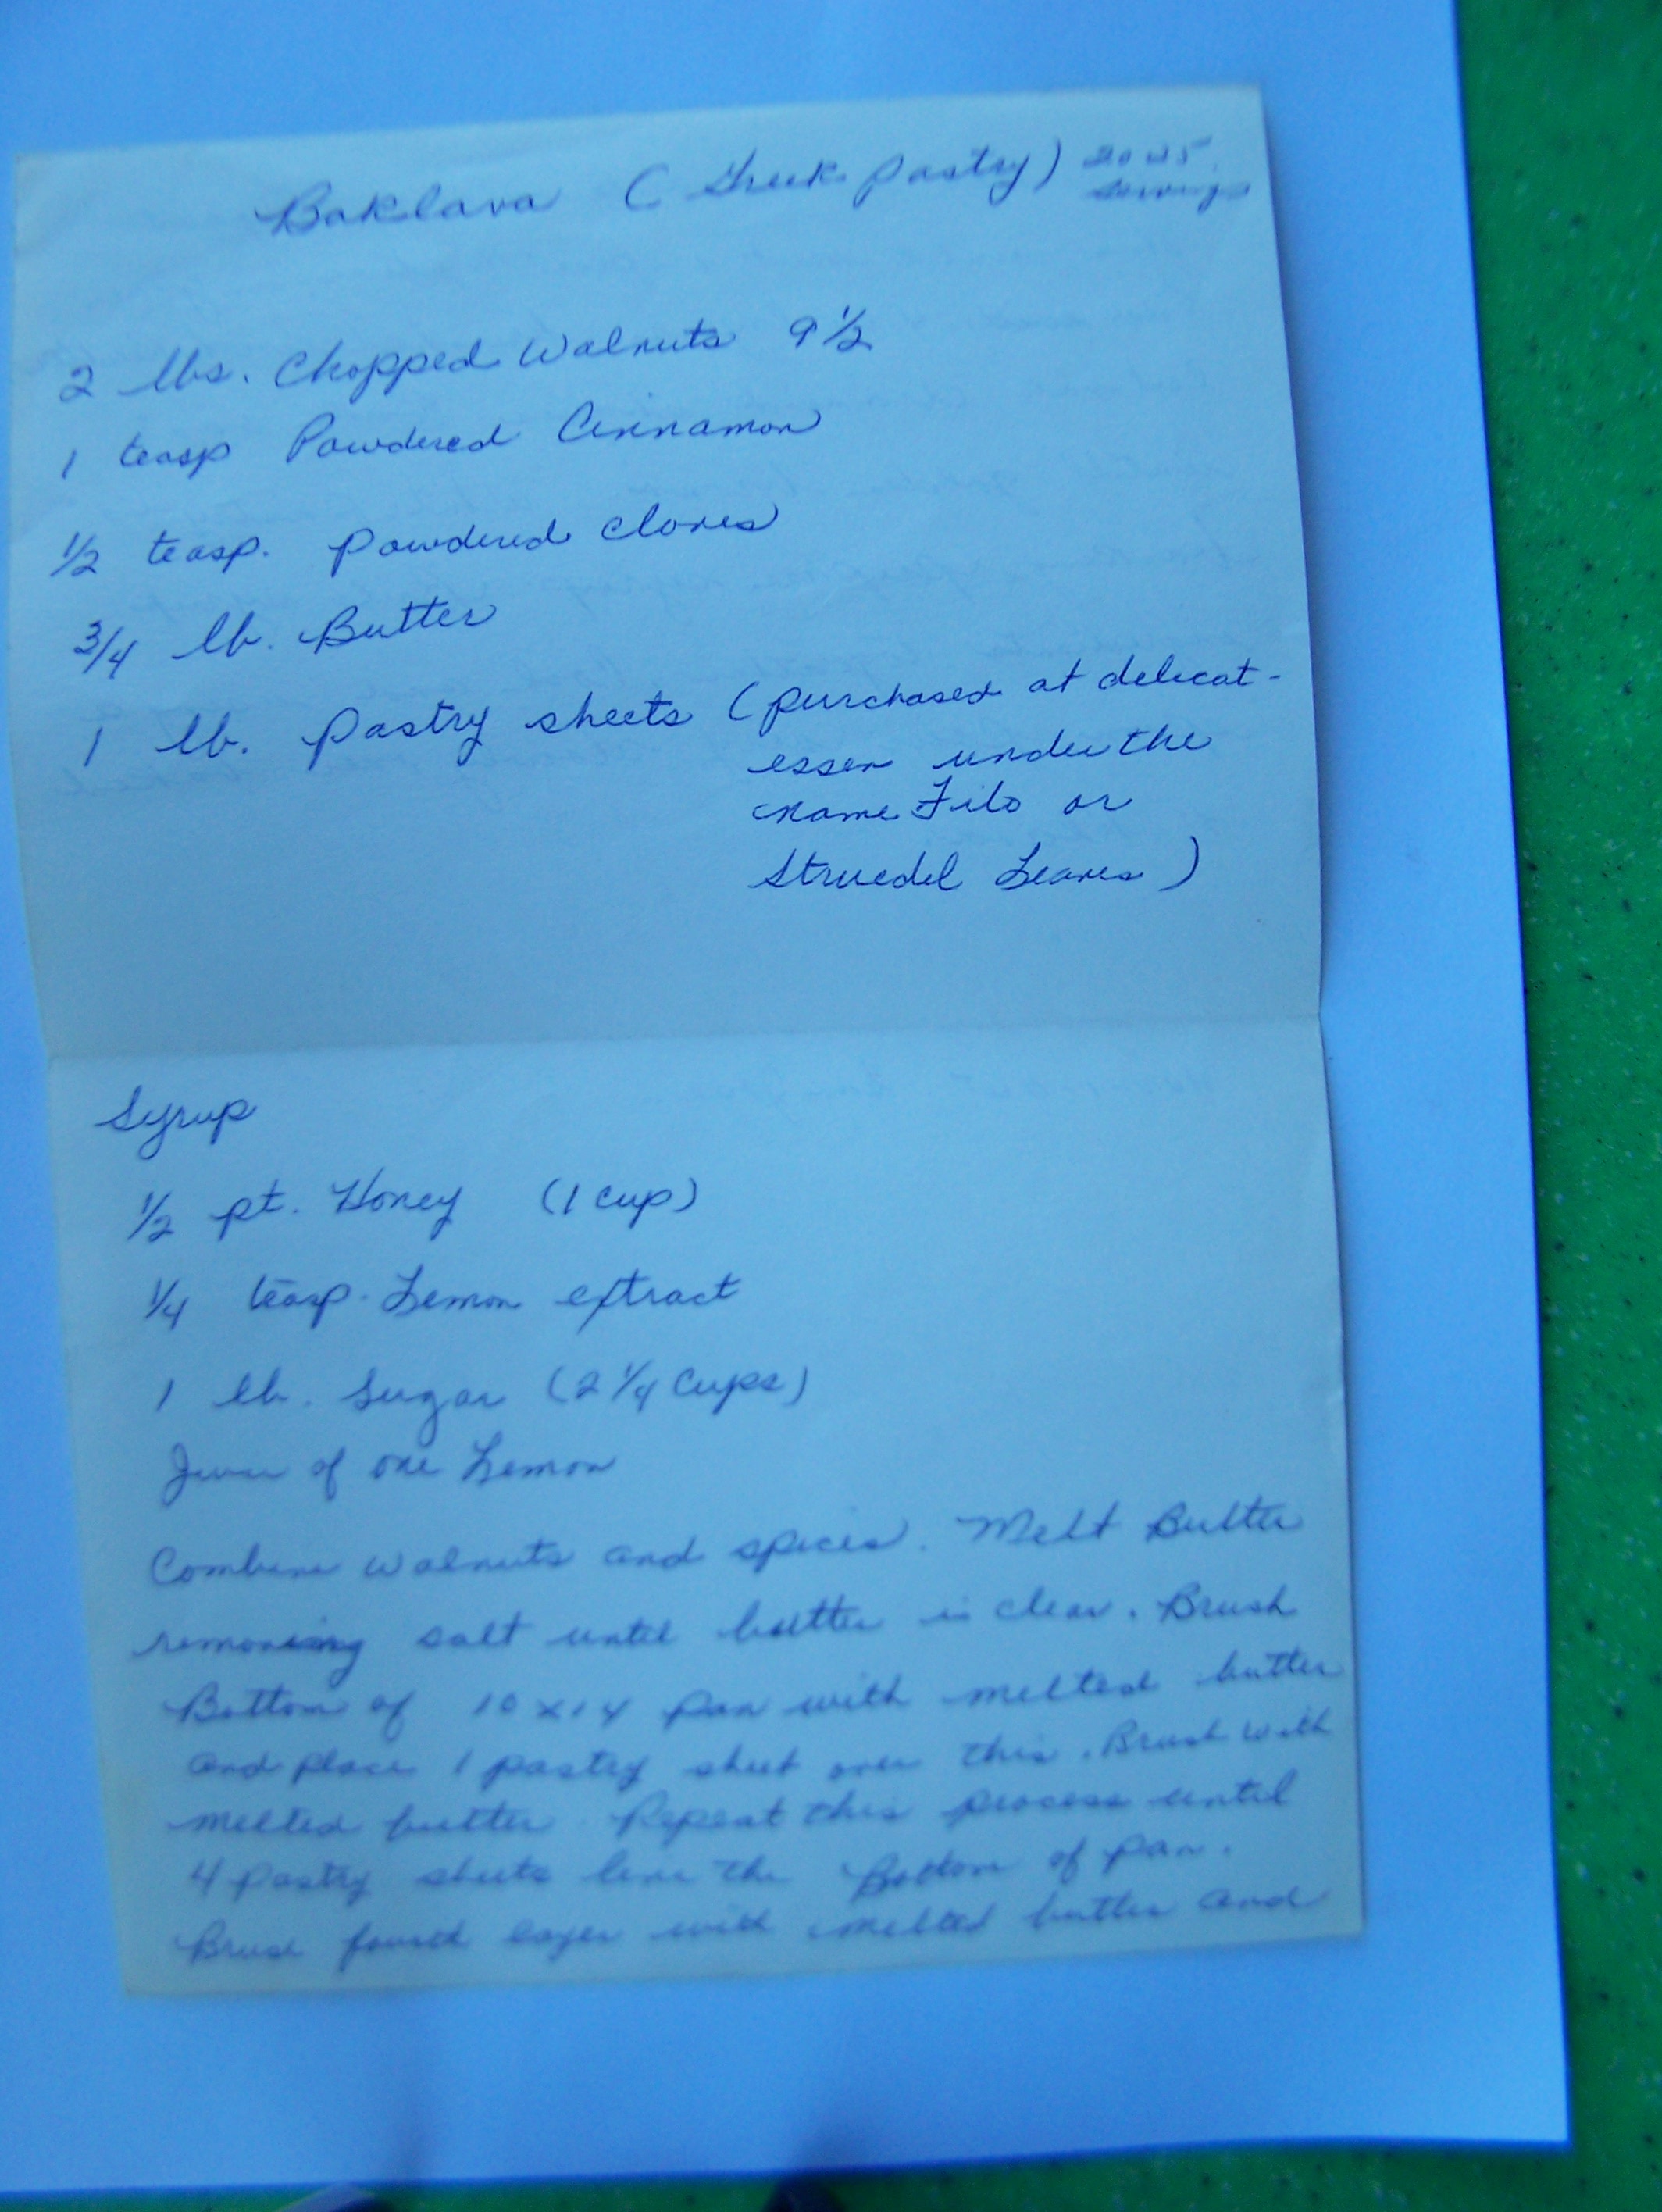 Baklava (Greek Pastry)
Servings
2 lbs. Chopped Walnuts 9 1/2
1 teasp Powdered Cinnamon
1/2 teasp. Powdered Cloves
3/4 lb. Butter
1 lb. Pastry sheets (purchased at delicat-
essen under the
name Filo or
Struedel Leaves)
Syrup
1/2 pt. Honey (1 cup)
1/4 teasp. Lemon extract
1 lb. Sugar (2 1/4 Cups)
Juice of one Lemon
Combine walnuts and spices. Melt Butter
removing salt until butter is clear. Brush
Bottom of 10 x 14 pan with melted butter
and place 1 pastry sheet over this. Brush with
melted butter. Repeat this process until
4 pastry sheets line the Bottom of pan.
Brush fourth layer with melted butter and